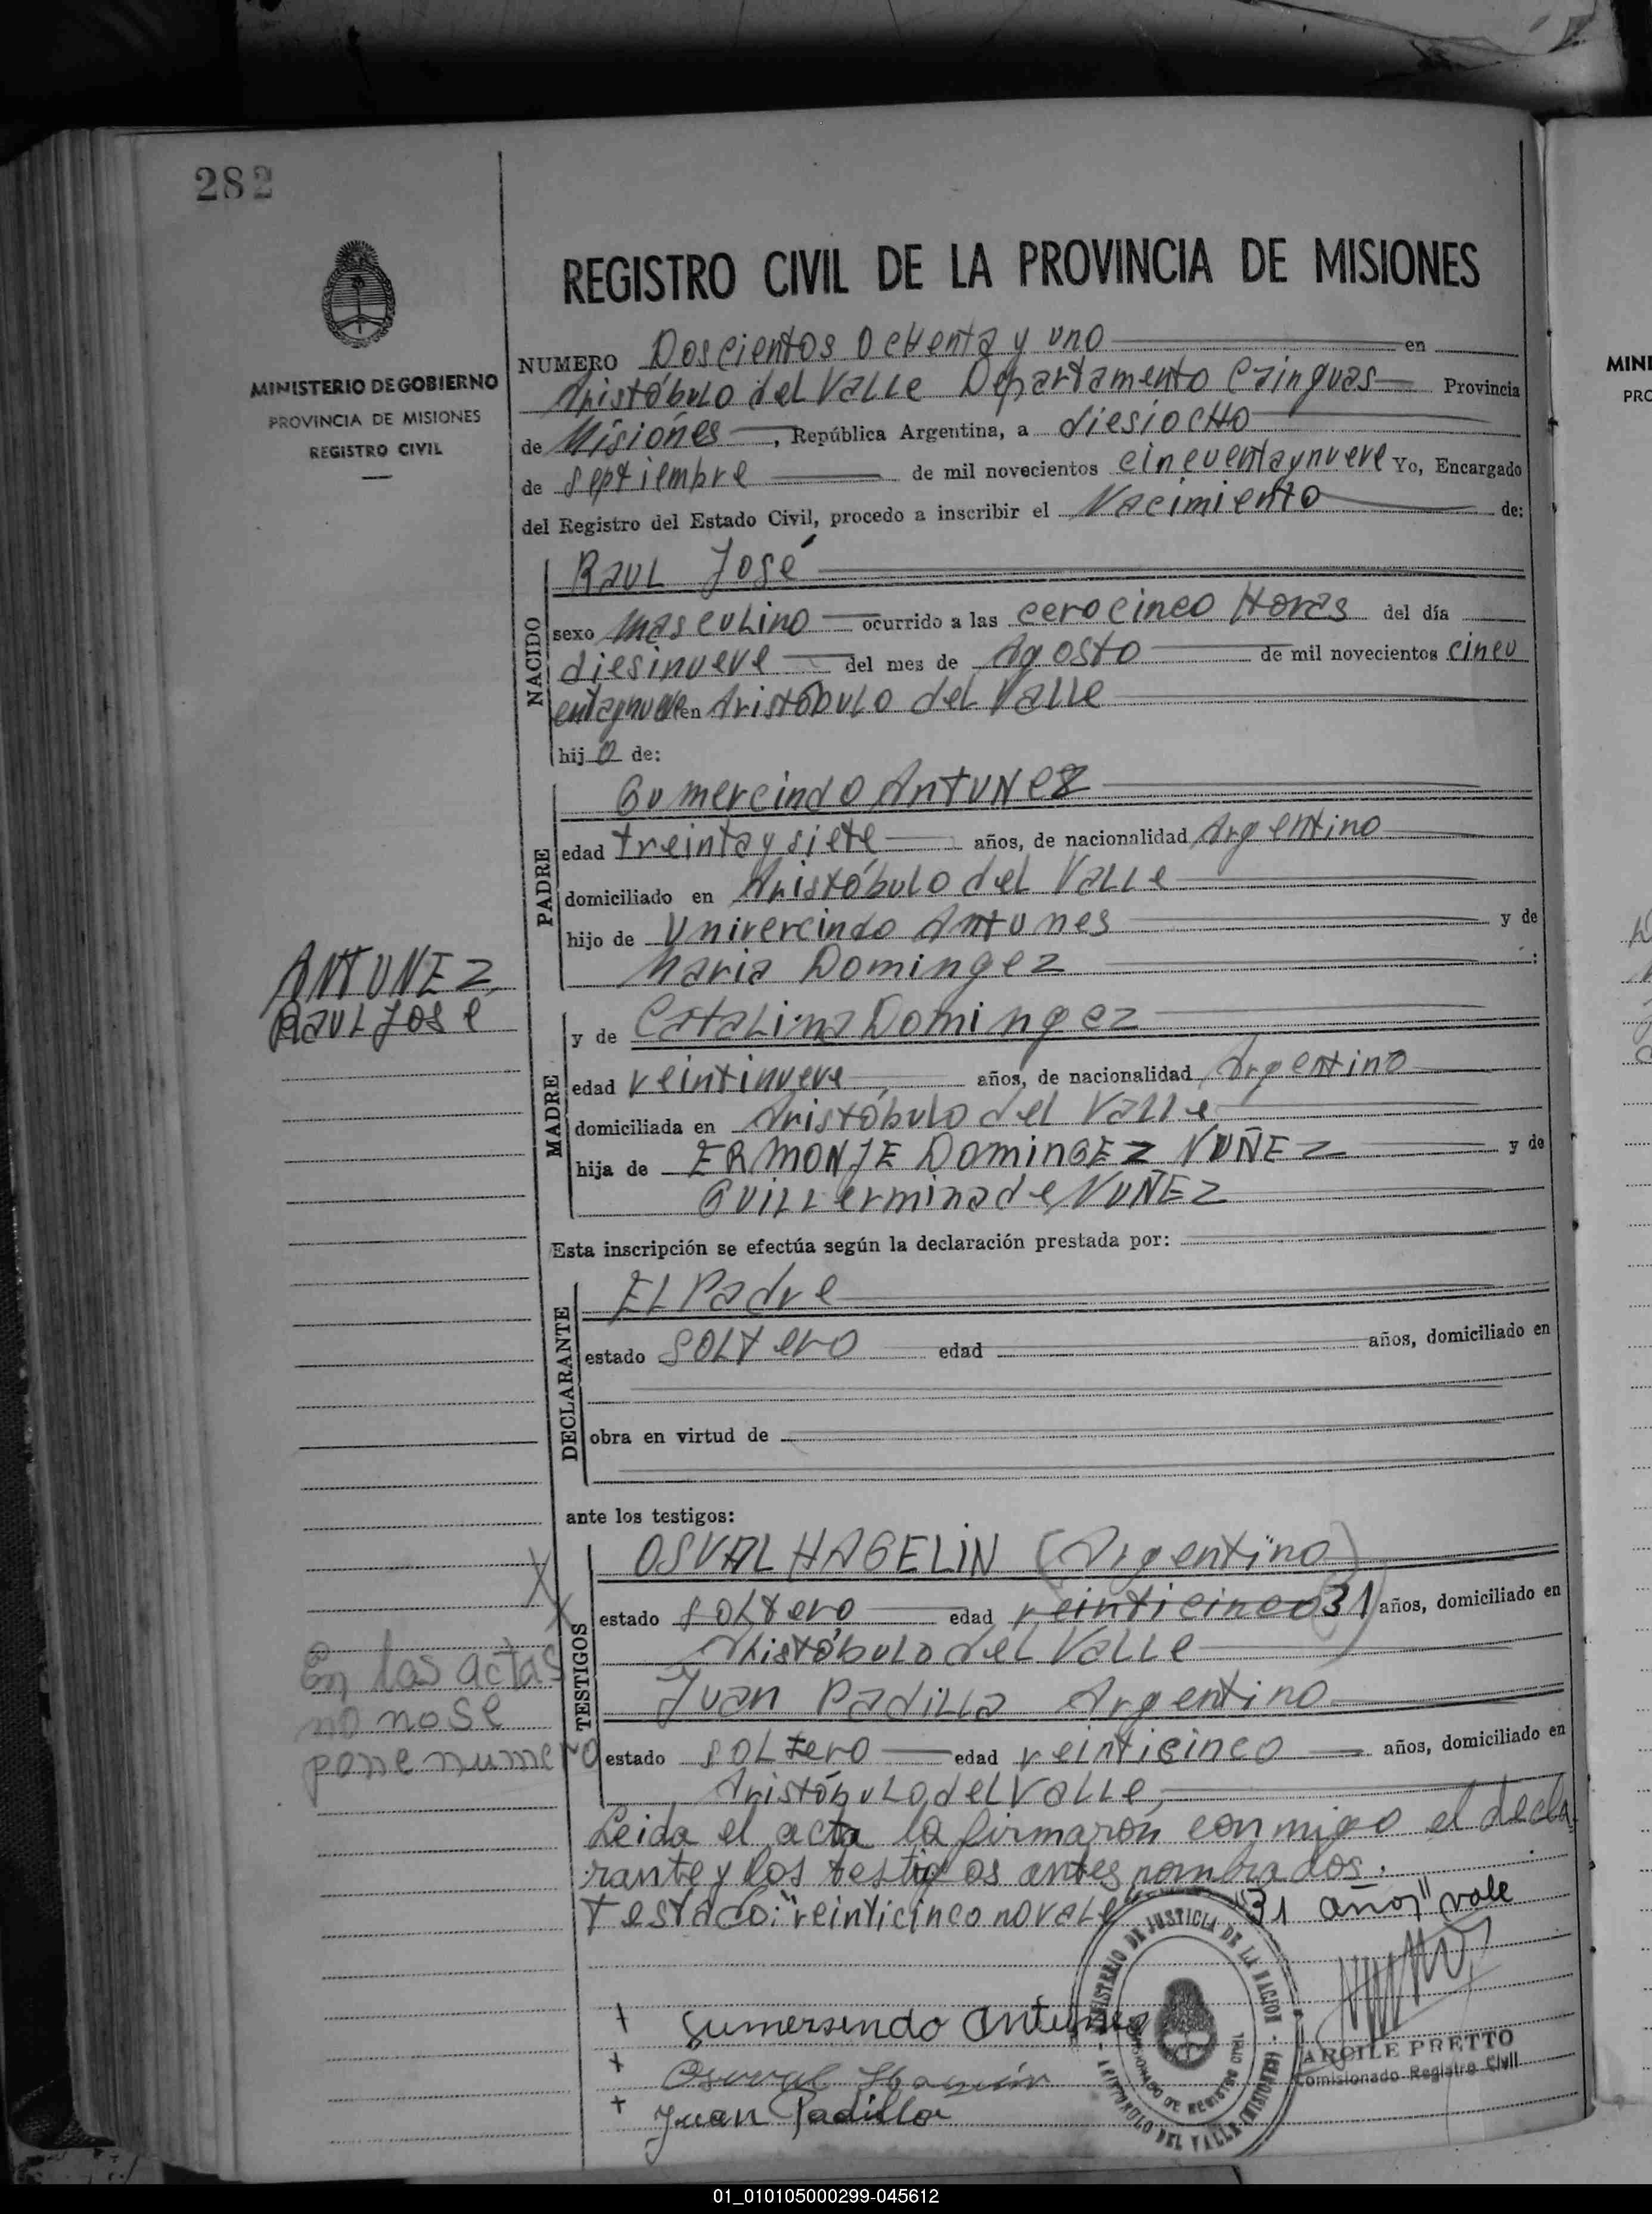 282
MINISTERIO DE GOBIERNO
PROVINCIA DE MISIONES
REGISTRO CIVIL
REGISTRO CIVIL DE LA PROVINCIA DE MISIONES
NUMERO Doscientos Ochenta y uno en
Aristóbulo del Valle Departamento Cainguas Provincia
de Misiones, República Argentina, a diesiocho
de septiembre de mil novecientos cincuentaynueve Yo, Encargado
del Registro del Estado Civil, procedo a inscribir el Nacimiento de:
NACIDO
Raul José
sexo masculino ocurrido a las cero cinco Horas del día
diesinueve del mes de Agosto de mil novecientos cincu
entaynueve en Aristóbulo del Valle
hijo de:
PADRE
Gumercindo Antunez
edad treinta y siete años, de nacionalidad Argentino
domiciliado en Aristóbulo del Valle
hijo de Univercindo Antunes y de
Maria Domingez
ANTUNEZ,
Raul Jose
MADRE
y de Catalina Domingez
edad veintinueve años, de nacionalidad Argentino
domiciliada en Aristóbulo del Valle
hija de ERMONJE DominGEZ NUÑEZ y de
Guillermina de NUÑEZ
Esta inscripción se efectúa según la declaración prestada por:
DECLARANTE
El Padre
estado soltero edad años, domiciliado en
obra en virtud de
ante los testigos:
TESTIGOS
OSVAL HAGELIN (Argentino)
estado soltero edad veinticinco 31) años, domiciliado en
Aristóbulo del Valle
Juan Padilla Argentino
estado soltero edad veinticinco años, domiciliado en
Aristóbulo del Valle,
En las actas
no no se
pone numero
Leida el acta la firmaron conmigo el decla
rante y los testigos antes nombrados.
Testado: "veinticinco no vale "31 años" vale
MINISTERIO DE JUSTICIA DE LA NACION
ARISTOBULO DEL VALLE (MISIONES)
+ Gumersendo Antunes
+ Osval
+ Juan Padilla
ARGILE PRETTO
Comisionado Registro Civil
MINI
PRO
01_010105000299-045612